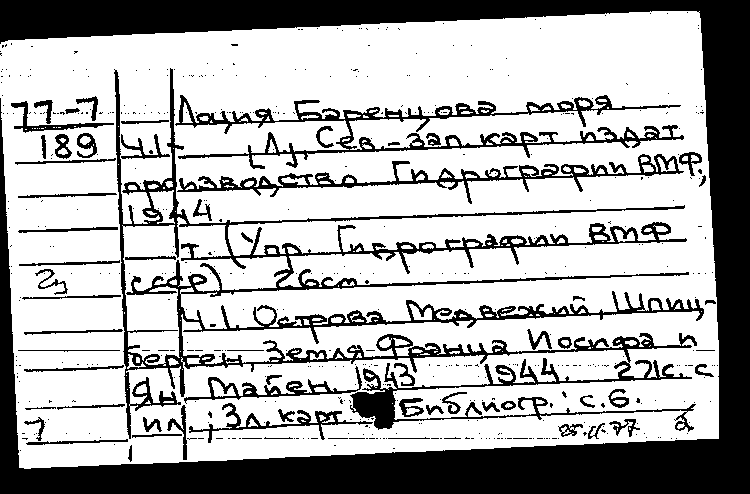 77-7 Лоция Баренцова моря.
189 Ч.1- [Л.], Сев.-Зап. карт издат.
производство Гидрографии ВМФ,
1944.
т. (Упр. Гидрографии ВМФ
СССР) 26см.
Ч.1. Острова Медвежий, Шпиц-
берген, Земля Франца Иосифа и
Ян Майен. 1943. 1944. 271с. с
ил.; 3л. карт. Библиогр.: с.6.
7 25.11.77 2